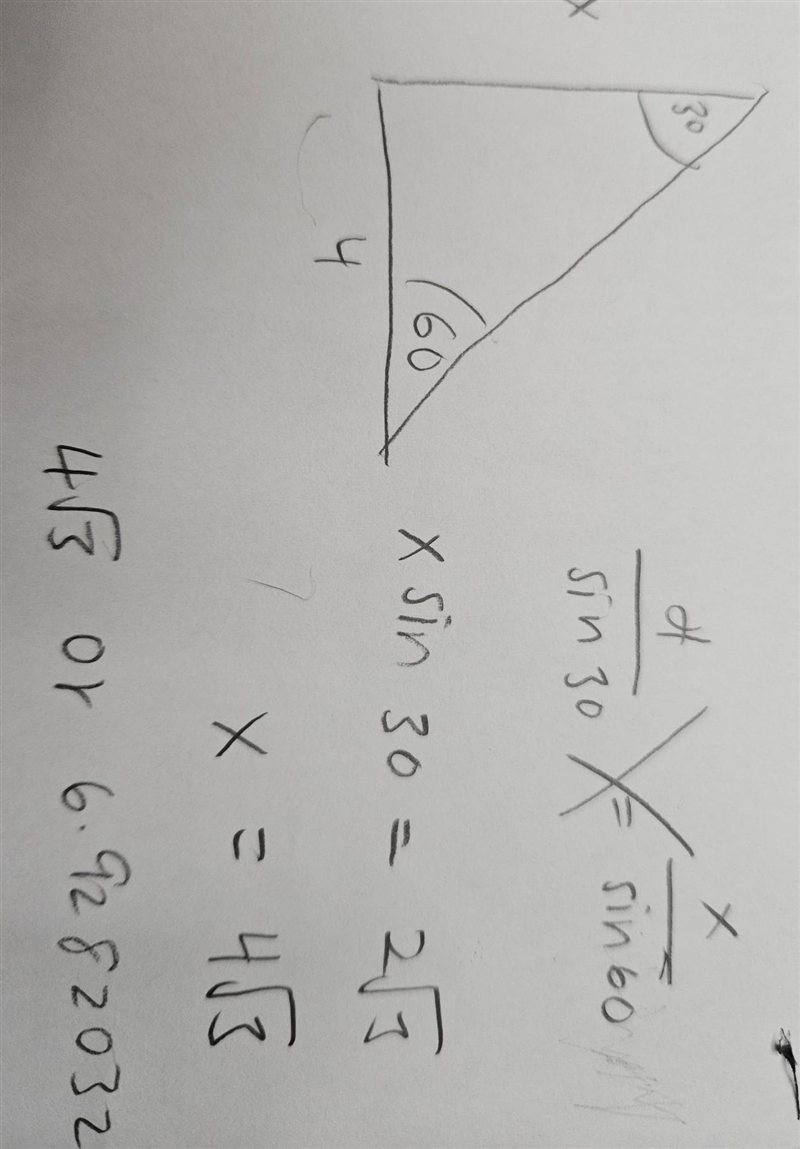 30
x
60
4
4/sin 30 = x/sin 60
x sin 30 = 2√3
x = 4√3
4√3 or 6.9282032